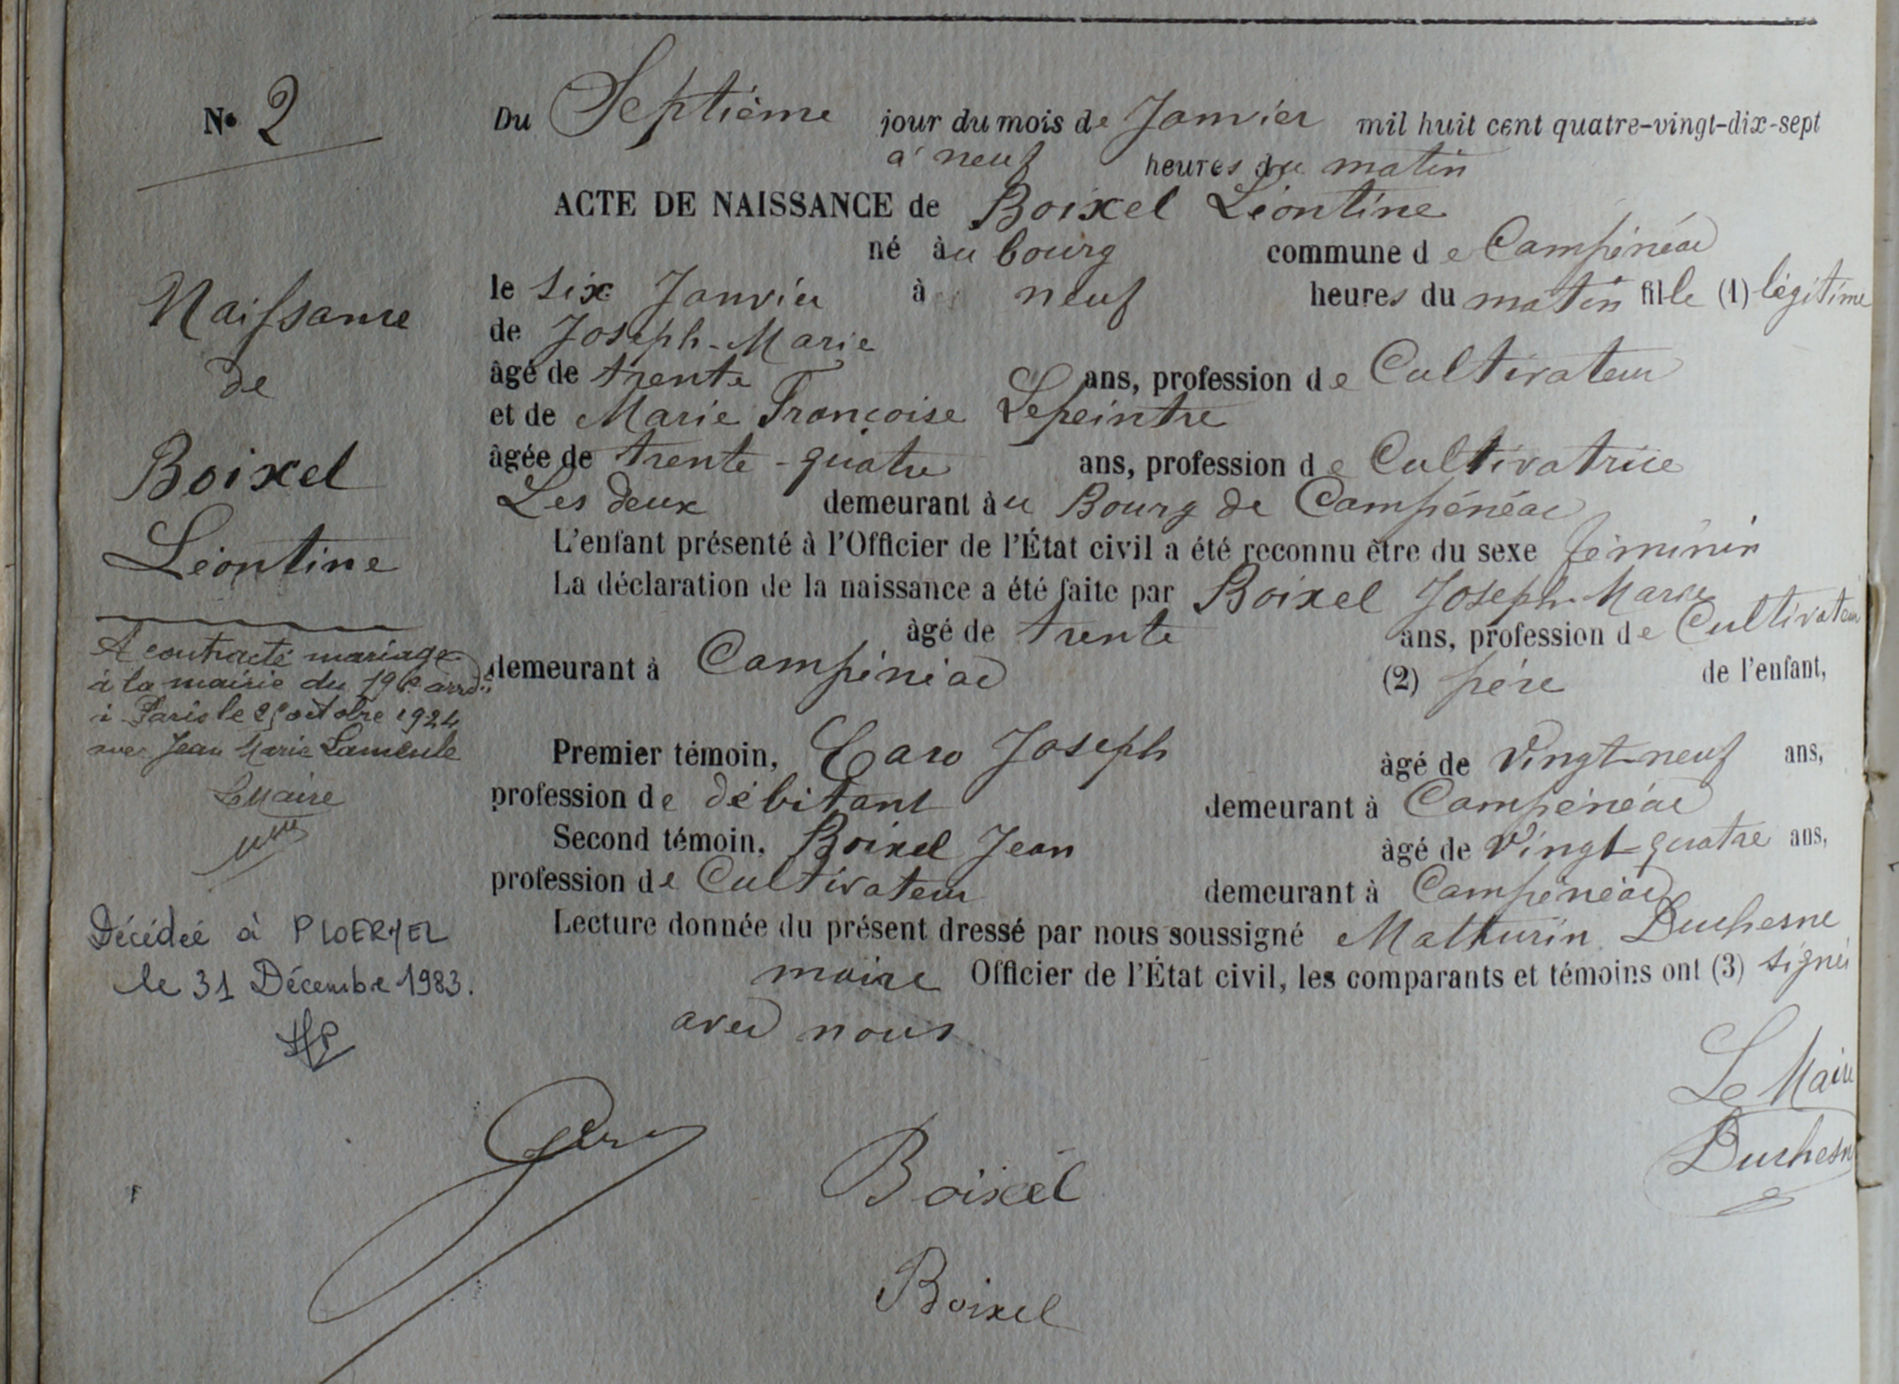 N° 2
Naissance
de
Boixel
Léontine
A contracté mariage
à la mairie du 19e arrdt
à Paris le octobre 1924
avec Jean Marie
Le Maire
Décédée à PLOERMEL
le 31 Décembre 1983.
Du Septième jour du mois de Janvier mil huit cent quatre-vingt-dix-sept
à neuf heures du matin
ACTE DE NAISSANCE de Boixel Léontine
né àu bourg commune de Campénéac
le six Janvier à neuf heures du matin fille (1) légitime
de Joseph-Marie
âgé de trente ans, profession de Cultivateur
et de Marie Françoise Lepeintre
âgée de trente-quatre ans, profession de Cultivatrice
Les deux demeurant àu Bourg de Campénéac
L'enfant présenté à l'Officier de l'État civil a été reconnu être du sexe féminin
La déclaration de la naissance a été faite par Boixel Joseph-Marie
âgé de trente ans, profession de Cultivateur
demeurant à Campénéac (2) père de l'enfant,
Premier témoin, Caro Joseph âgé de Vingt-neuf ans,
profession de débitant demeurant à Campénéac
Second témoin, Boixel Jean âgé de Vingt-quatre ans,
profession de Cultivateur demeurant à Campénéac
Lecture donnée du présent dressé par nous soussigné Mathurin Duchesne
maire Officier de l'État civil, les comparants et témoins ont (3) signé
avec nous
Le Maire
Duchesne
Caro
Boixel
Boixel